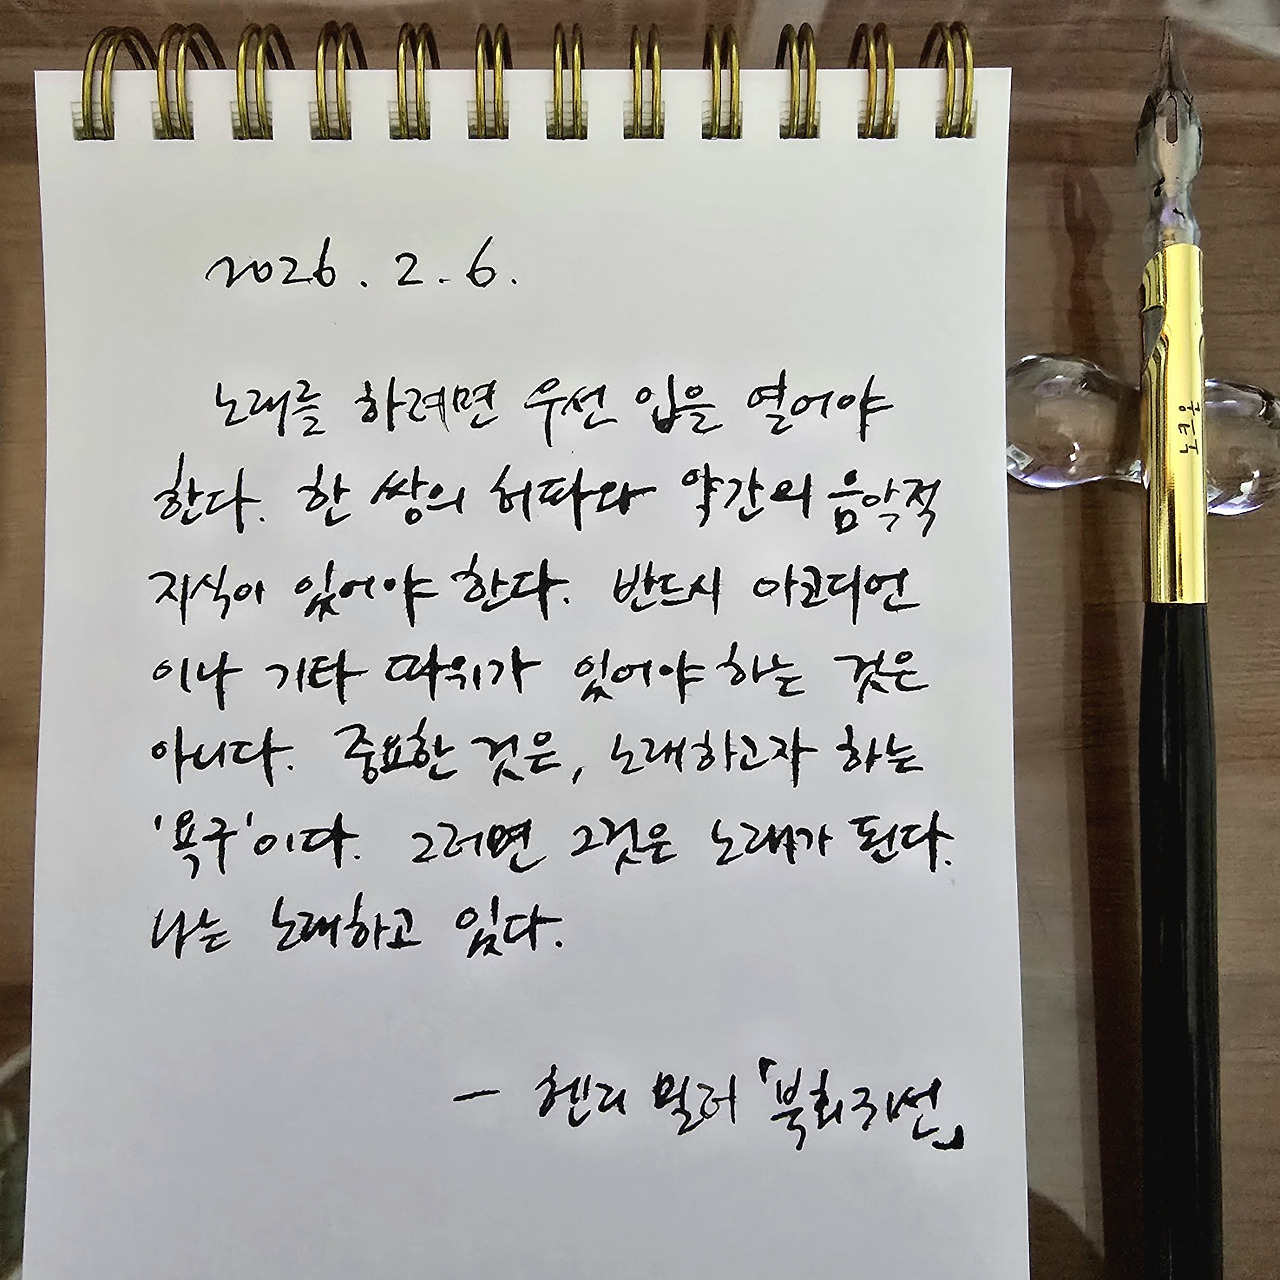 2026. 2. 6.
노래를 하려면 우선 입을 열어야
한다. 한 쌍의 허파와 약간의 음악적
지식이 있어야 한다. 반드시 아코디언
이나 기타 따위가 있어야 하는 것은
아니다. 중요한 것은, 노래하고자 하는
'욕구'이다. 그러면 그것은 노래가 된다.
나는 노래하고 있다.
- 헨리 밀러 「북회귀선」